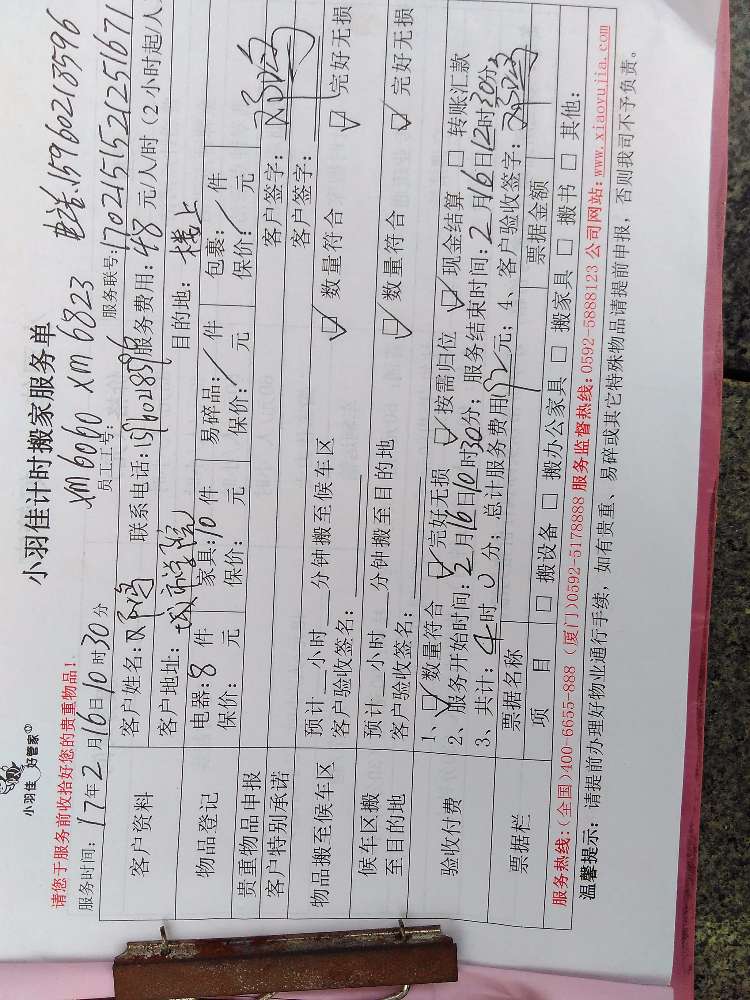 小羽佳 好管家
小羽佳计时搬家服务单
请您于服务前收拾好您的贵重物品！
xm6060 xm6823 电话.15960218596
服务时间：17年2月16日10时30分 员工工号： 服务联号：1702151521251671
客户资料 客户姓名：邓鸿 联系电话：15960218596 服务费用：48 元/人/时（2小时起/人
客户地址：城市学院 目的地：楼上
物品登记 电器：8 件 家具：10 件 易碎品：/ 件 包裹：/ 件
保价： 元 保价： 元 保价：/ 元 保价：/ 元
贵重物品申报
客户特别承诺 客户签字：邓鸿
客户签字：
物品搬至候车区 预计 小时 分钟搬至候车区 ☑ 数量符合 ☑ 完好无损
客户验收签名：
候车区搬至目的地 预计 小时 分钟搬至目的地 ☑ 数量符合 ☑ 完好无损
客户验收签名：
验收付费 1、☑ 数量符合 ☑ 完好无损 ☑ 按需归位 ☑ 现金结算 □ 转账汇款
2、服务开始时间：2月16日10时30分；服务结束时间：2月16日12时30分
3、共计：4时0分；总计服务费用192元；4、客户验收签字：邓鸿
票据栏 票据名称 票据金额
项 目 □ 搬设备 □ 搬办公家具 □ 搬家具 □ 搬书 □ 其他：
服务热线：（全国）400-6655-888（厦门）0592-5178888 服务监督热线：0592-5888123 公司网站：www.xiaoyujia.com
温馨提示：请提前办理好物业通行手续，如有贵重、易碎或其它特殊物品请提前申报，否则我司不予负责。